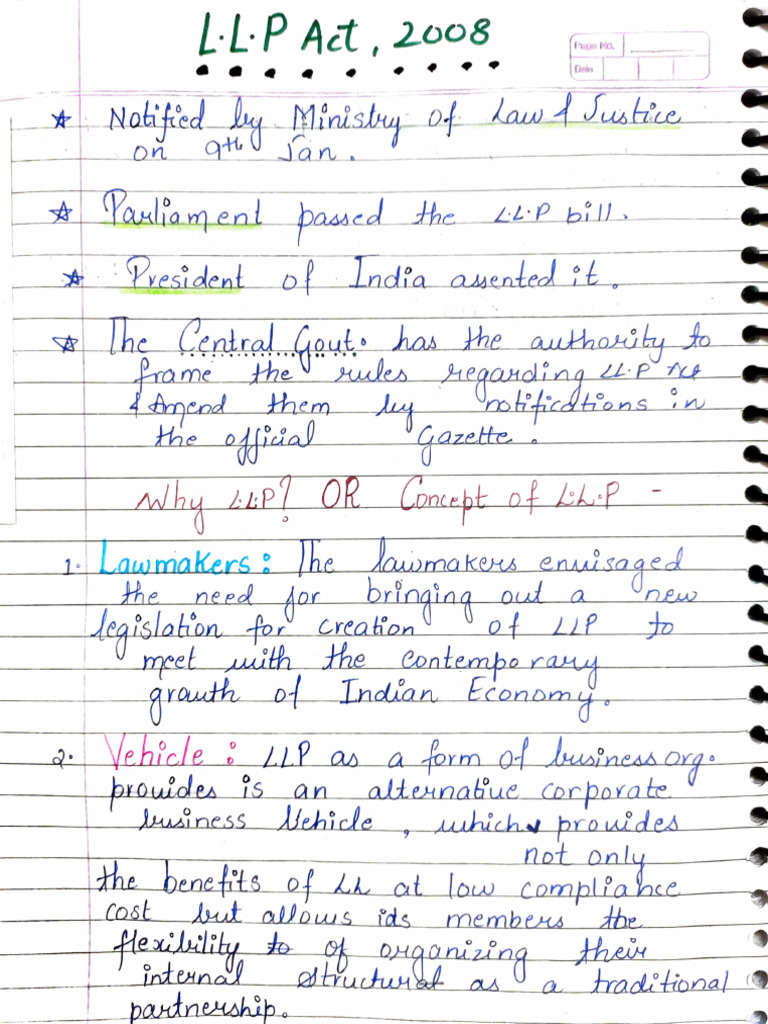 L.L.P Act, 2008
Page No.
Date
☆ Notified by Ministry of Law & Justice
on 9th Jan.
☆ Parliament passed the L.L.P bill.
☆ President of India assented it.
☆ The Central Govt. has the authority to
frame the rules regarding LL.P Act
& Amend them by notifications in
the official Gazette.
Why L.L.P? OR Concept of L.L.P -
1. Lawmakers: The lawmakers envisaged
the need for bringing out a new
legislation for creation of LLP to
meet with the contemporary
growth of Indian Economy.
2. Vehicle: LLP as a form of business org.
provides is an alternative corporate
business Vehicle, which provides
not only
the benefits of LL at low compliance
cost but allows ids members the
flexibility to of organizing their
internal structural as a traditional
partnership.